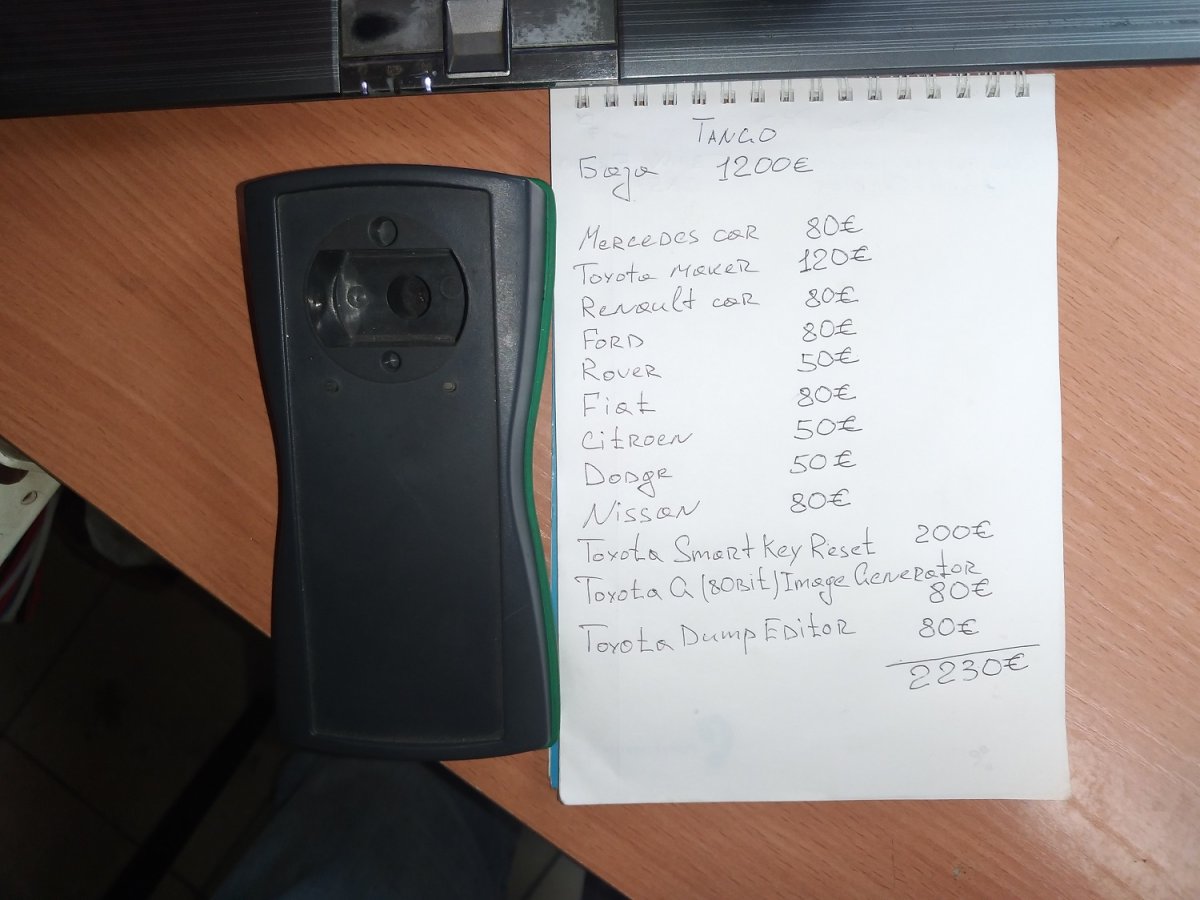 TANGO
База 1200€
Mercedes car 80€
Toyota Maker 120€
Renault car 80€
Ford 80€
Rover 50€
Fiat 80€
Citroen 50€
Dodge 50€
Nissan 80€
Toyota Smart Key Reset 200€
Toyota G (80Bit) Image Generator
80€
Toyota Dump Editor 80€
2230€